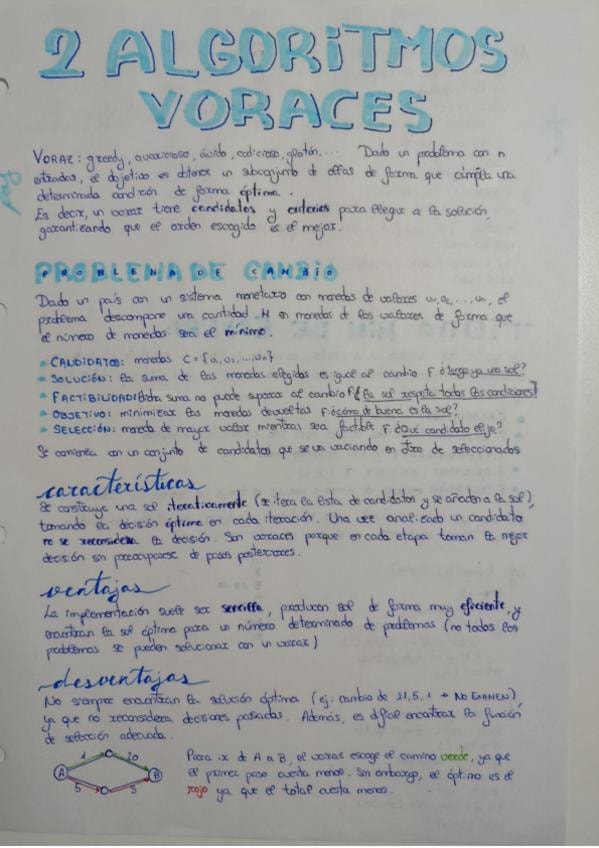 2 ALGORITMOS
VORACES
VORAZ: greedy, avaricioso, ávido, codicioso, glotón,... Dado un problema con n
entradas, el objetivo es obtener un subconjunto de ellas de forma que cumpla una
determinada condición de forma óptima.
Es decir, un voraz tiene candidatos y criterios para llegar a la solución,
garantizando que el orden escogido es el mejor.
PROBLEMA DE CAMBIO
Dado un país con un sistema monetario con monedas de valores v1, v2, ..., vn, el
problema descompone una cantidad M en monedas de los valores de forma que
el número de monedas sea el mínimo.
• CANDIDATOS: monedas C = {v1, v2, ... vn}
• SOLUCIÓN: la suma de las monedas elegidas es igual al cambio F ¿tengo ya una sol?
• FACTIBILIDAD: dicha suma no puede superar al cambio F ¿la sol respeta todas las condiciones?
• OBJETIVO: minimizar las monedas devueltas F ¿cómo de buena es la sol?
• SELECCIÓN: moneda de mayor valor mientras sea factible F ¿Qué candidato elijo?
Se comienza con un conjunto de candidatos que se va vaciando en otro de seleccionados
características
Se construye una sol iterativamente (se itera la lista de candidatos y se añaden a la sol),
tomando la decisión óptima en cada iteración. Una vez analizado un candidato
no se reconsidera la decisión. Son voraces porque en cada etapa toman la mejor
decisión sin preocuparse de pasos posteriores.
ventajas
La implementación suele ser sencilla, producen sol de forma muy eficiente, y
encuentran la sol óptima para un número determinado de problemas (no todos los
problemas se pueden solucionar con un voraz)
desventajas
No siempre encuentran la solución óptima (ej: cambio de 11, 5, 1 → NO EXAMEN),
ya que no reconsidera decisiones pasadas. Además, es difícil encontrar la función
de selección adecuada.
1 20
A B
5 5
Para ir de A a B, el voraz escoge el camino verde, ya que
el primer paso cuesta menos. Sin embargo, el óptimo es el
rojo ya que el total cuesta menos.